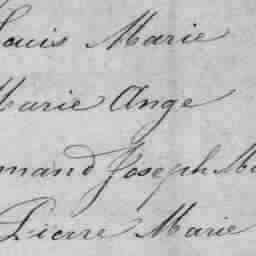 Louis Marie
Marie Ange
mand Joseph Ma
Pierre Marie